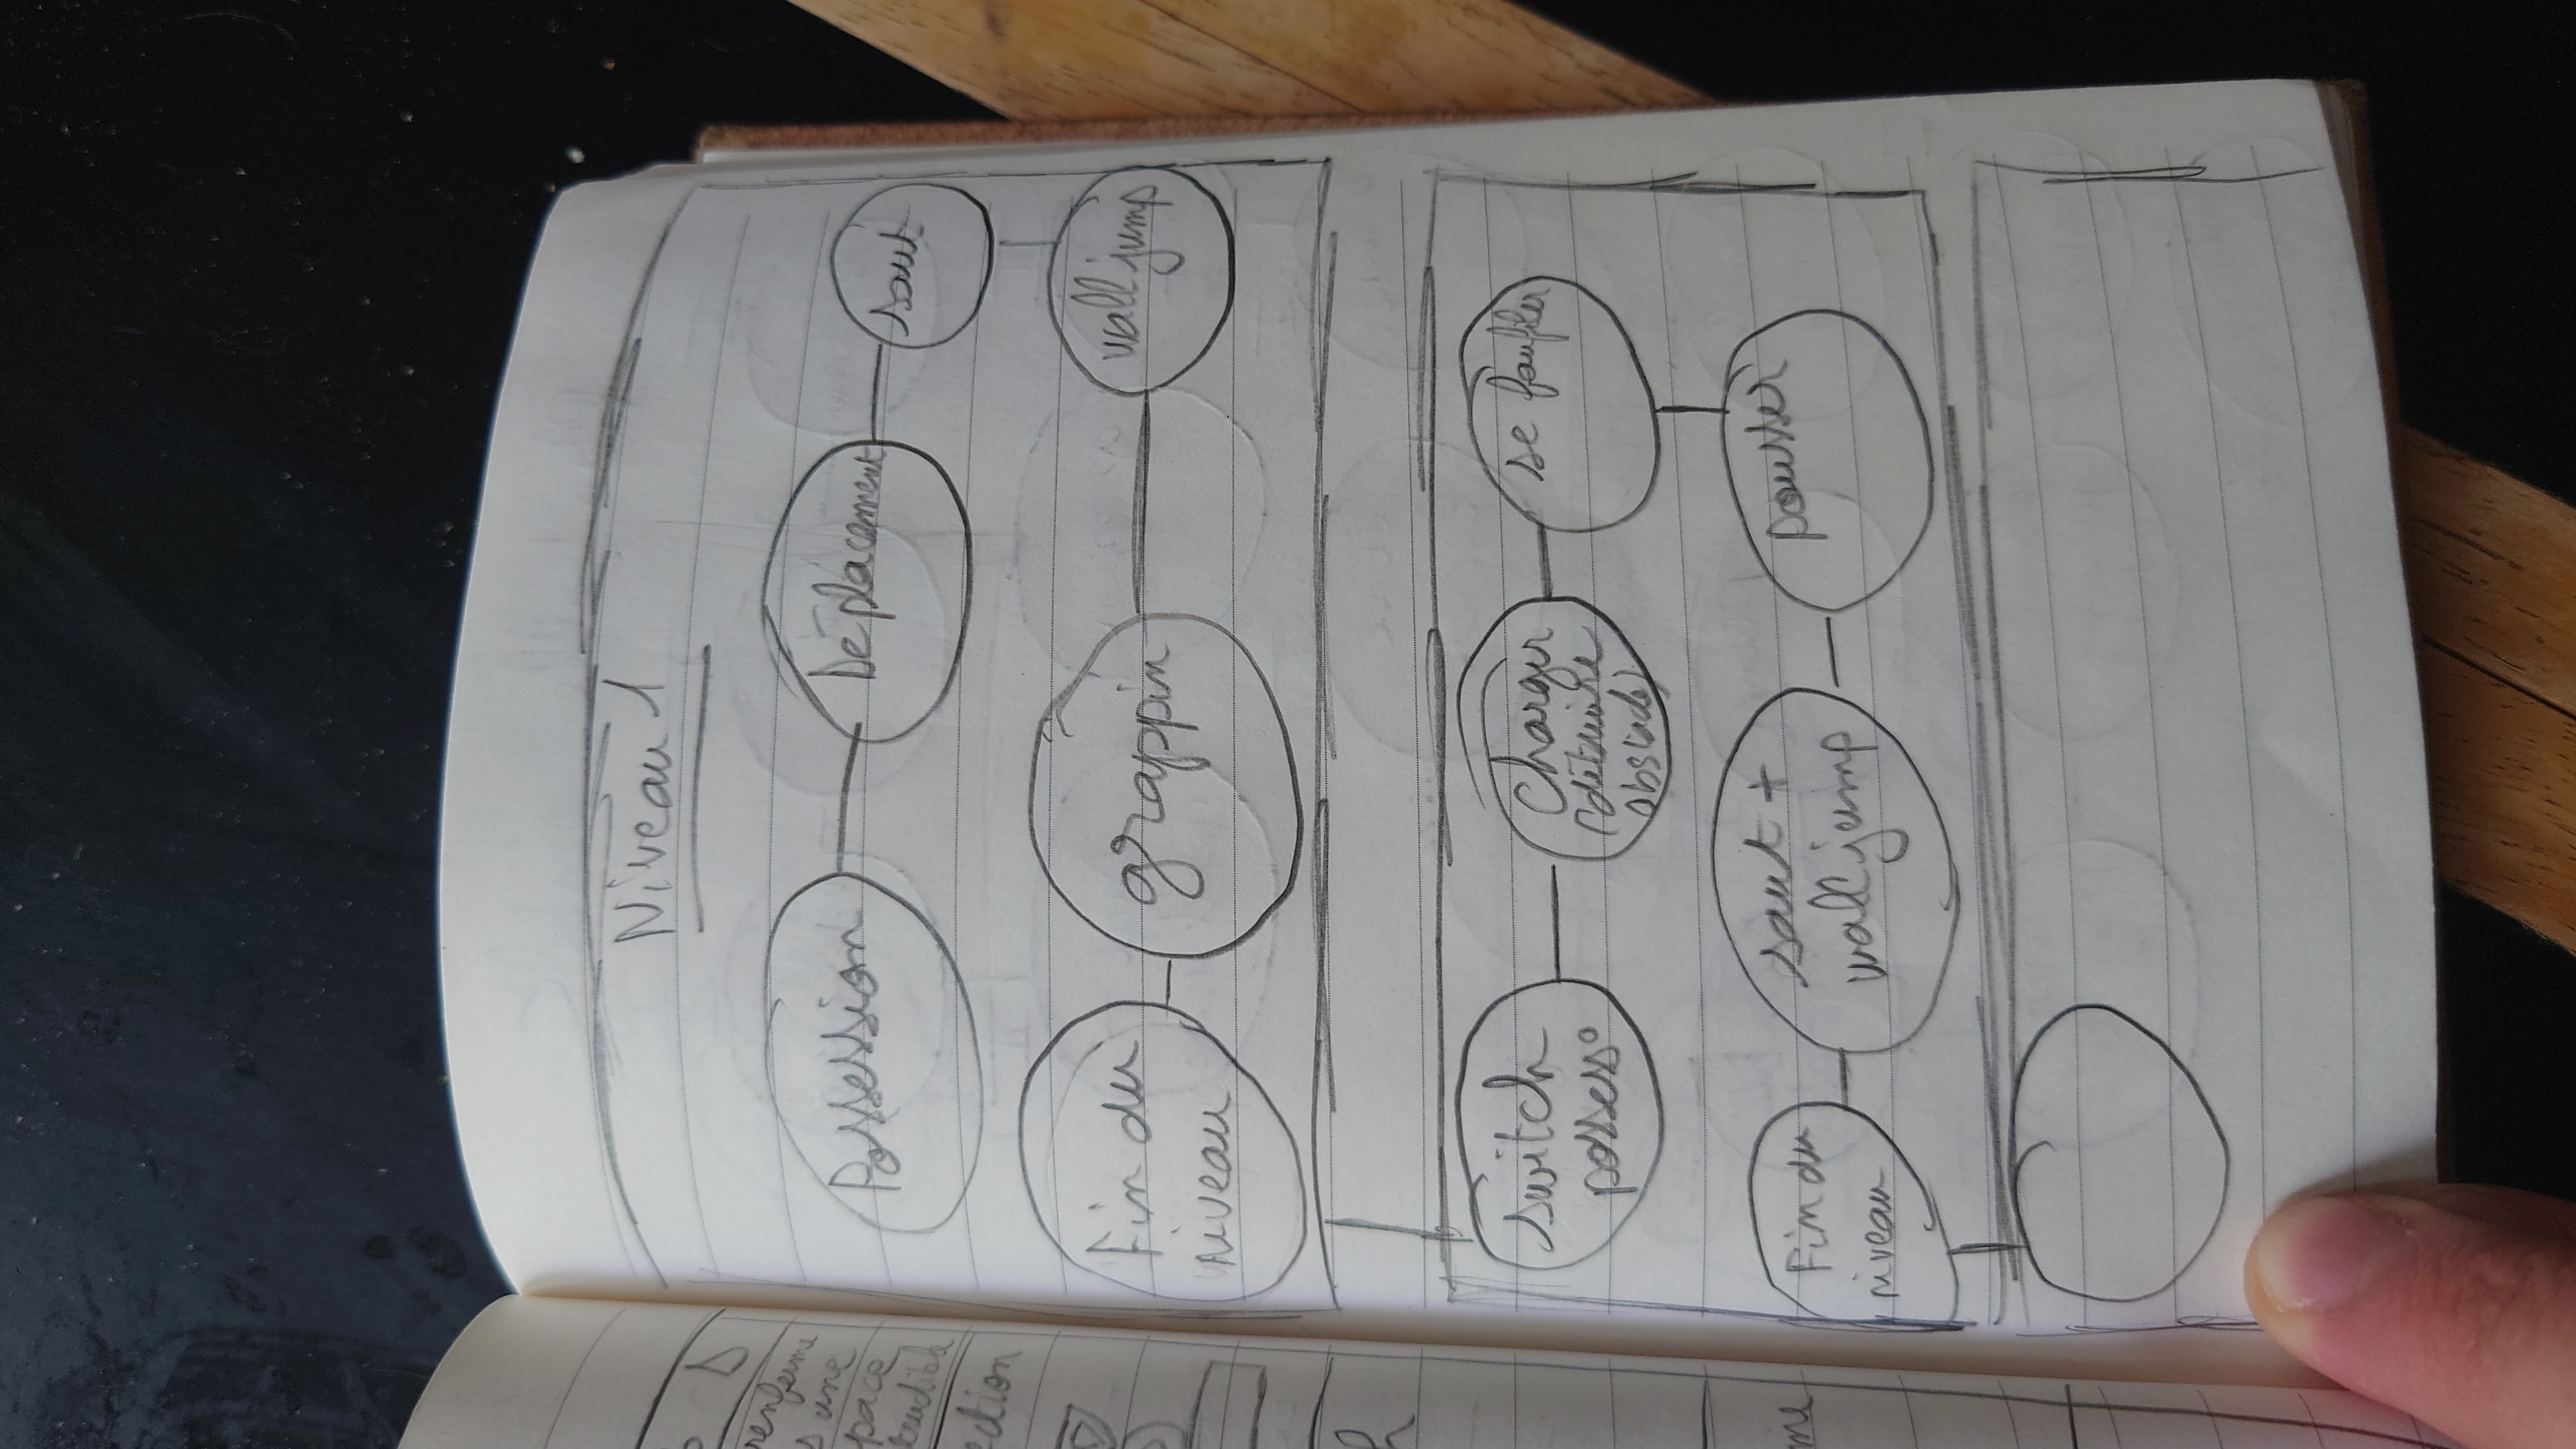 D
renferme
s une
pace
ection
me
Niveau 1
Possession
Déplacement
saut
wall jump
grappin
Fin du
niveau
switch
possess°
Charger
(détruire
obstacle)
se faufiler
pousser
saut +
wall jump
Fin du
niveau